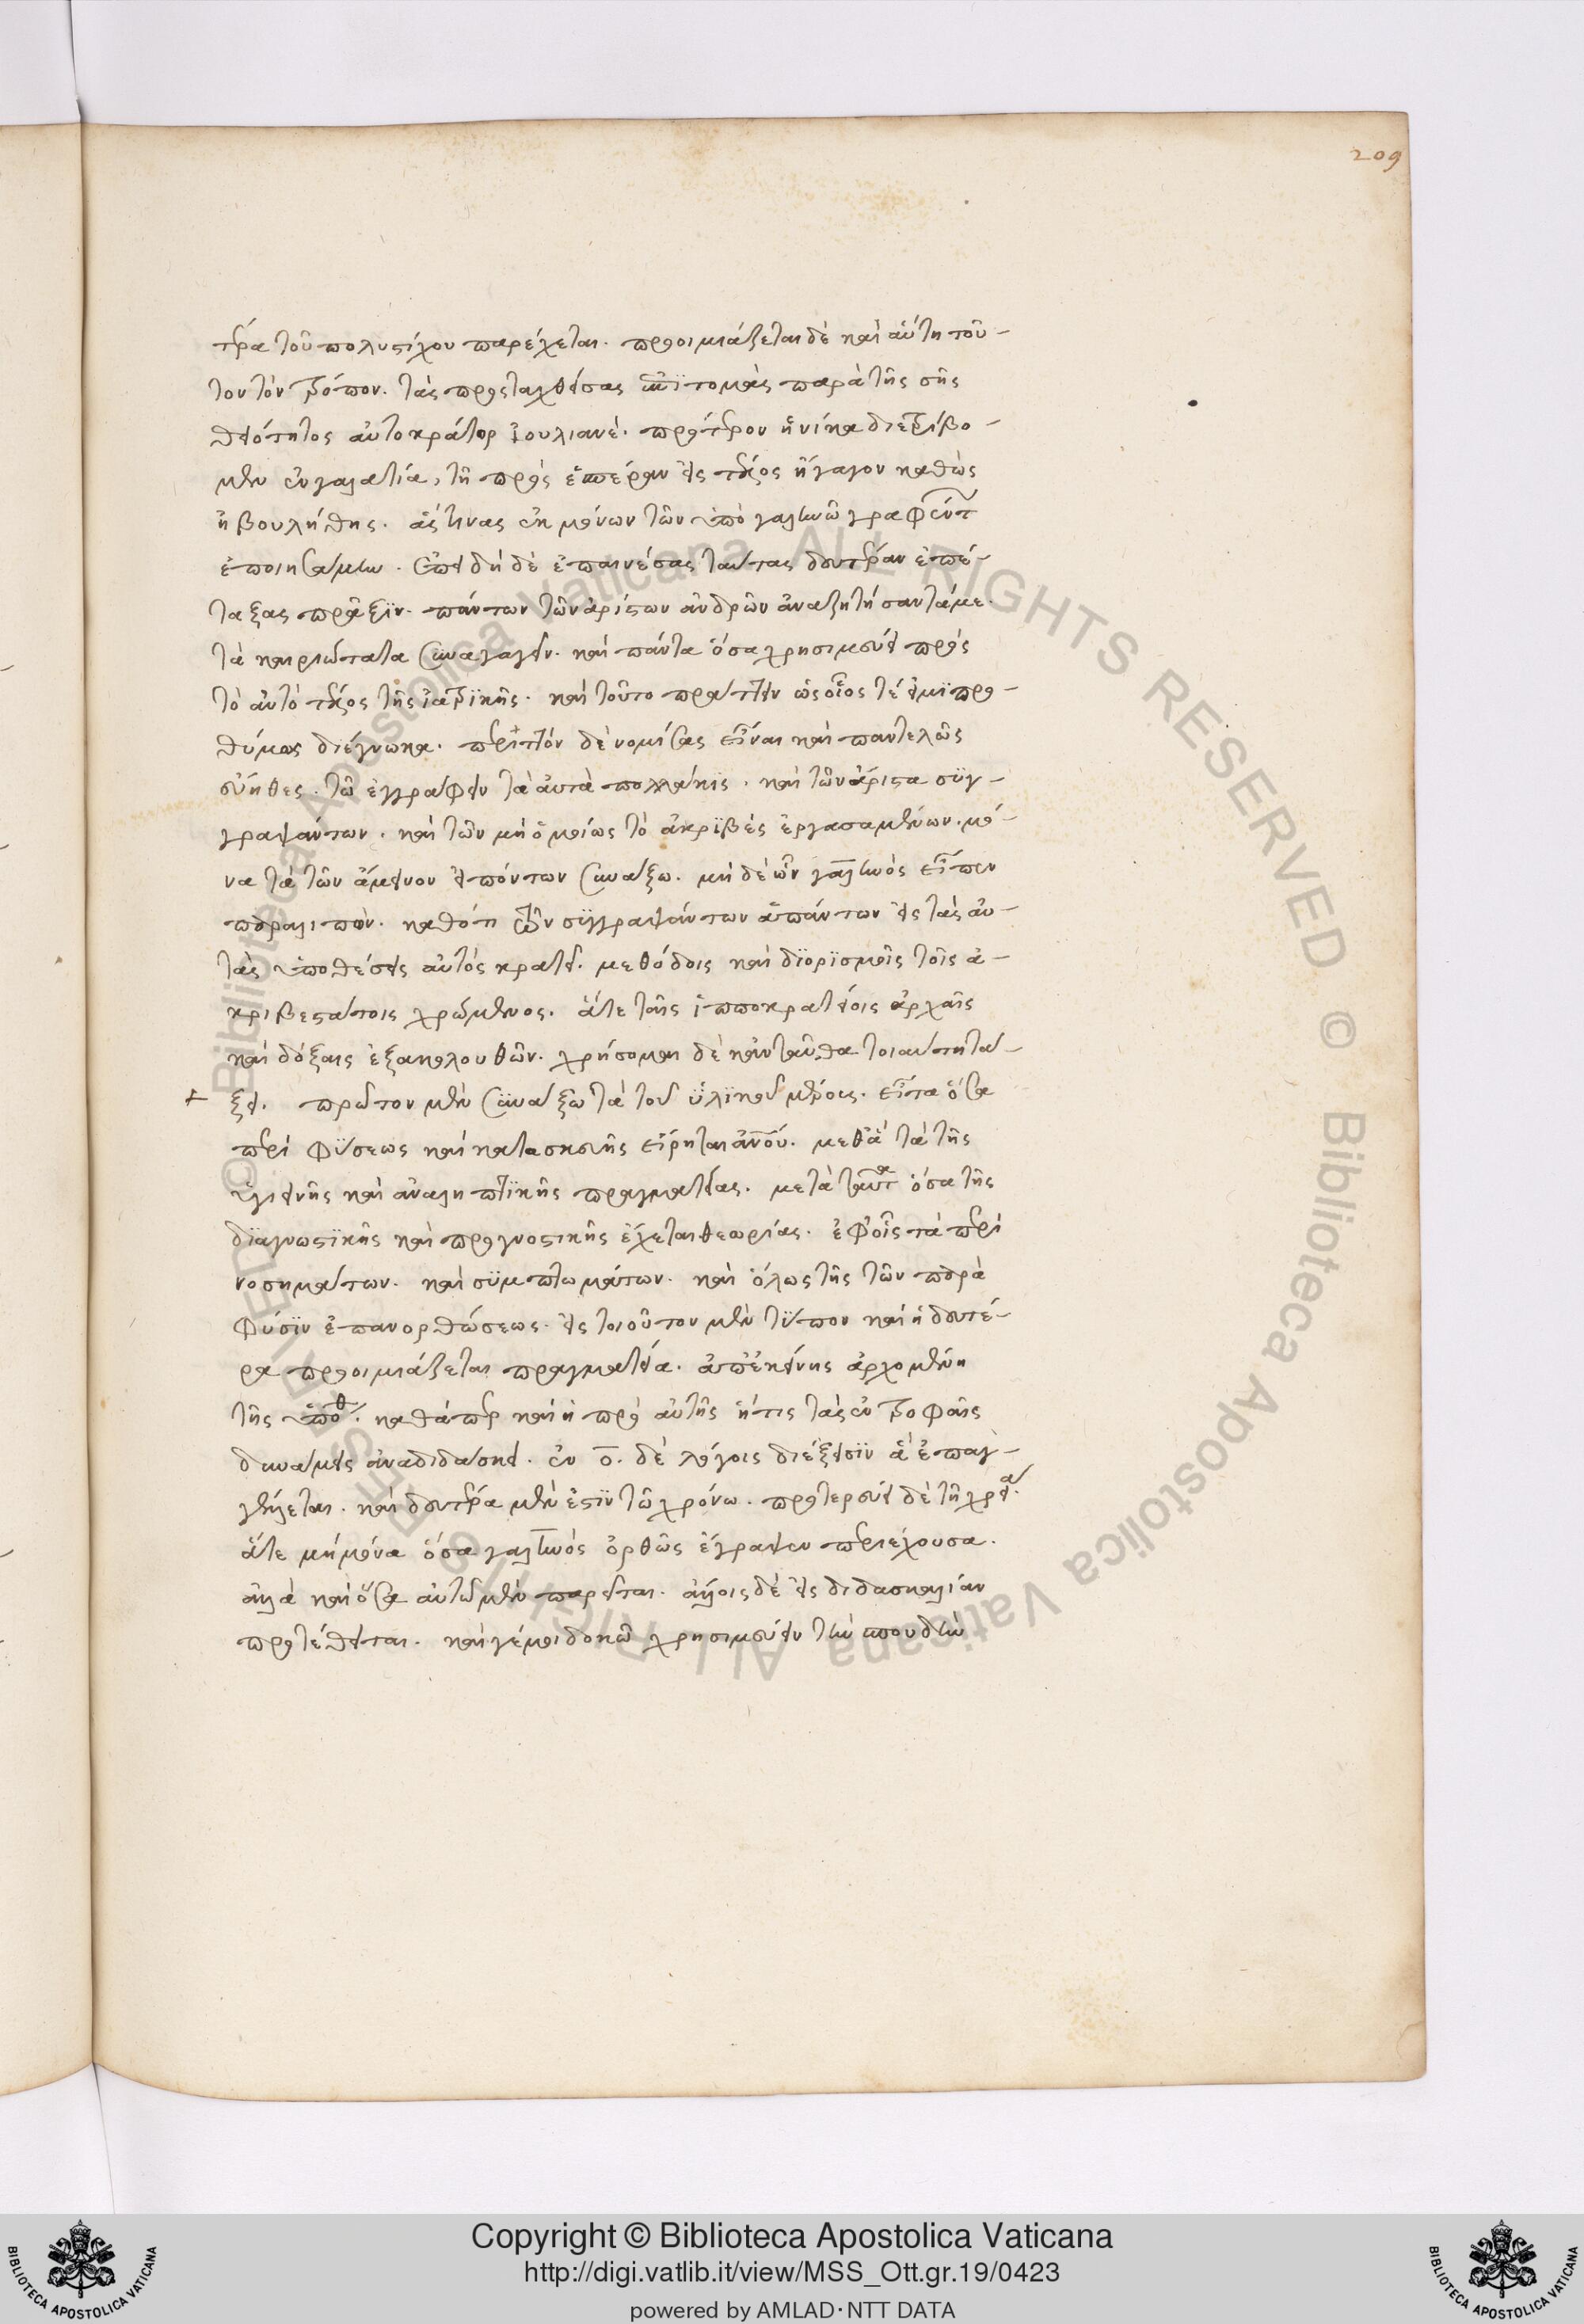 209
τέρα τοῦ πολυστίχου παρέχεται. προοιμιάζεται δὲ καὶ αὕτη τοῦ-
τον τὸν τρόπον. τὰς προσταχθείσας ἐπιτομὰς παρὰ τῆς σῆς
θειότητος αὐτοκράτορ ἰουλιανέ. πρότερον ἡνίκα διετρίβο-
μεν ἐν γαλατία, τῆ πρὸς ἑσπέραν εἰς τέλος ἤγαγον καθὼς
ἠβουλήθης. ἅς τινας ἐκ μόνων τῶν ὑπὸ γαληνοῦ γραφέντ
ἐποιησάμην. ἐπειδὴ δὲ ἐπαινέσας ταύτας δευτέραν ἐπέ-
ταξας πρᾶξιν. πάντων τῶν ἀρίστων ἀνδρῶν ἀναζητήσαντά με.
τὰ καιριώτατα συναγαγεῖν. καὶ πάντα ὅσα χρησιμεύει πρὸς
τὸ αὐτὸ τέλος τῆς ἰατρικῆς. καὶ τοῦτο πράττειν ὡς οἷός τέ εἰμι προ-
θύμως διέγνωκα. περιττὸν δὲ νομίσας εἶναι καὶ παντελῶς
εὔηθες. τῶ ἐγγράφειν τὰ αὐτὰ πολλάκις. καὶ τῶν ἄριστα συγ-
γραψάντων. καὶ τῶν μὴ ὁμοίως τὸ ἀκριβὲς ἐργασαμένων. μό-
να τὰ τῶν ἄμεινον εἰπόντων συνάξω. μὴ δὲ ὧν γαληνὸς εἶπεν
παραλιπών. καθότι τῶν συγγραψάντων ἁπάντων εἰς τὰς αὐ-
τὰς ὑποθέσεις αὐτὸς κρατεῖ. μεθόδοις καὶ διορισμοῖς τοῖς ἀ-
κριβεστάτοις χρώμενος. ἅτε ταῖς ἱπποκρατείοις ἀρχαῖς
καὶ δόξαις ἐξακολουθῶν. χρήσομαι δὲ κἀνταῦθα τοιαύτη τά-
ξει. πρῶτον μὲν συνάξω τὰ τοῦ ὑλικοῦ μέρους. εἶτα ὅσα
περὶ φύσεως καὶ κατασκευῆς εἴρηται ἀνου. μεθ' ἃ τὰ τῆς
ὑγιεινῆς καὶ ἀναληπτικῆς πραγματείας. μετὰ ταῦτα ὅσα τῆς
διαγνωστικῆς καὶ προγνοστικῆς ἔχεται θεωρίας. ἐφ' οἷς τὰ περὶ
νοσημάτων. καὶ συμπτωμάτων. καὶ ὅλως τῆς τῶν παρὰ
φύσιν ἐπανορθώσεως. εἰς τοιοῦτον μὲν τύπον καὶ ἡ δευτέ-
ρα προοιμιάζεται πραγματεία. ἀπ' ἐκείνης ἀρχομένη
τῆς ὑποθ. καθάπερ καὶ ἡ πρὸ αὐτῆς ἥτις τὰς ἐν τροφαῖς
δυνάμεις ἀναδιδάσκει. ἐν ο. δὲ λόγοις διέξεισιν ἃ ἐπαγ-
γέλλεται. καὶ δευτέρα μέν ἐστιν τῶ χρόνω. προτερεύει δὲ τῆ χρεία.
ἅτε μὴ μόνα ὅσα γαληνὸς ὀρθῶς ἔγραψεν περιέχουσα.
ἀλλὰ καὶ ὅσα αὐτῶ μὲν παρεῖται. ἄλλοις δὲ εἰς διδασκαλίαν
προτέθειται. καὶ γέ μοι δοκῶ χρησιμεύειν τὴν σπουδὴν